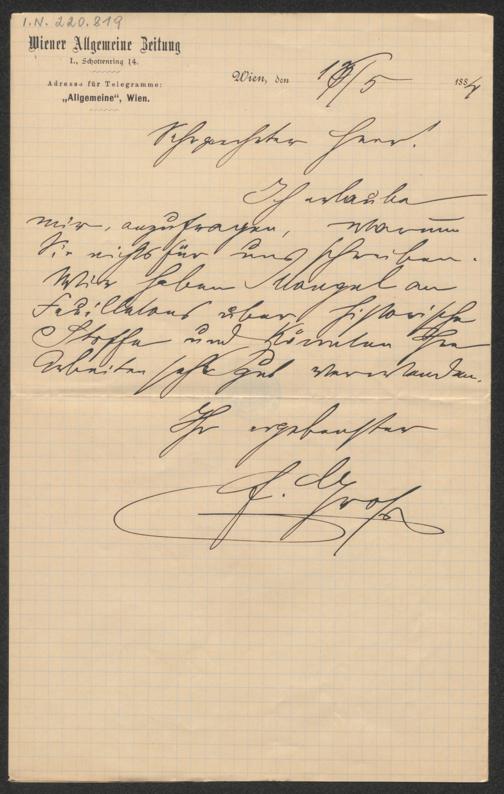 I.N. 220.819
Wiener Allgemeine Zeitung
I., Schottenring 14.
Adresse für Telegramme:
„Allgemeine“, Wien.
Wien, den /5 1884
Sehr geehrter Herr!
Ich erlaube
mir, anzufragen, warum
Sie nichts für uns schreiben.
Wir haben Mangel an
Feuilletons über historische
Stoffe und könnten Ihre
Arbeiten sehr gut verwenden.
Ihr ergebenster
F. Groß